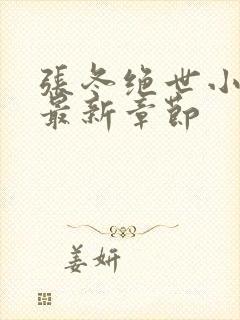 張冬绝世小
最新章節
姜妍